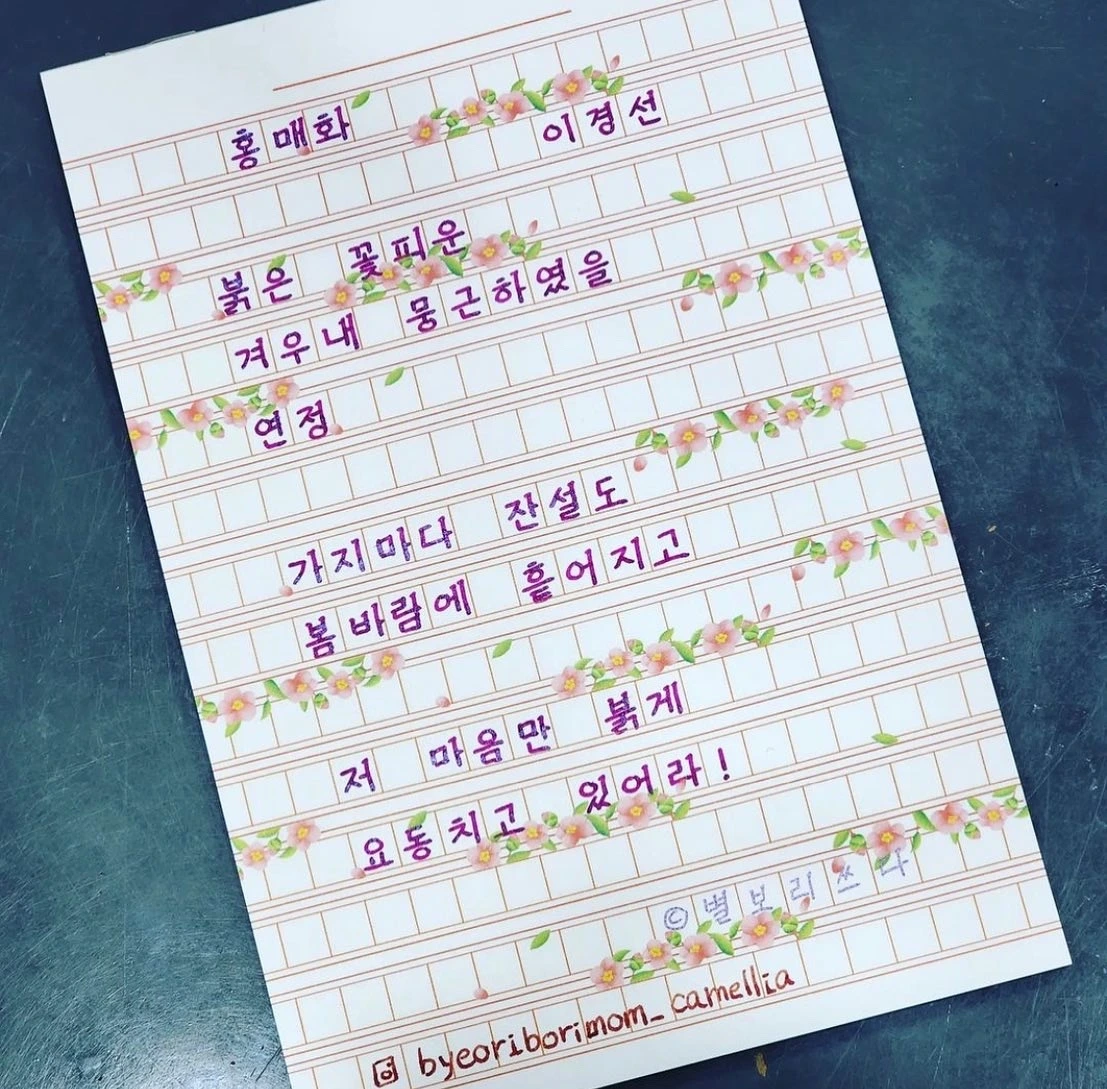 홍매화 이경선
붉은 꽃피운
겨우내 뭉근하였을
연정
가지마다 잔설도
봄바람에 흩어지고
저 마음만 붉게
요동치고 있어라!
© 별보리쓰다
byeoriborimom_camellia